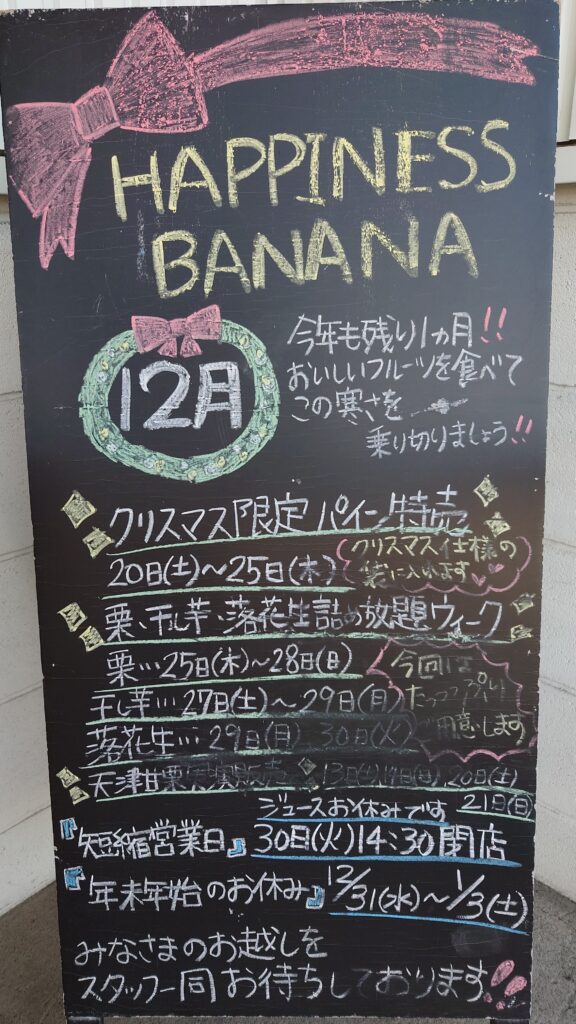 HAPPINESS
BANANA
12月
今年も残り1ヵ月!!
おいしいフルーツを食べて
この寒さを
乗り切りましょう!!
クリスマス限定パイン特売
20日(土)〜25日(木)
クリスマス仕様の
袋に入れます
栗、干し芋、落花生詰め放題ウィーク
栗…25日(木)〜28日(日)
干し芋…27日(土)〜29日(月)
落花生…29日(月) 30日(火)
今回は
たっっっぷり
ご用意します
天津甘栗実演販売 13日(土)14日(日)20日(土)
21日(日)
ジュースお休みです
『短縮営業日』30日(火)14:30閉店
『年末年始のお休み』12/31(水)〜1/3(土)
みなさまのお越しを
スタッフ一同お待ちしております!!